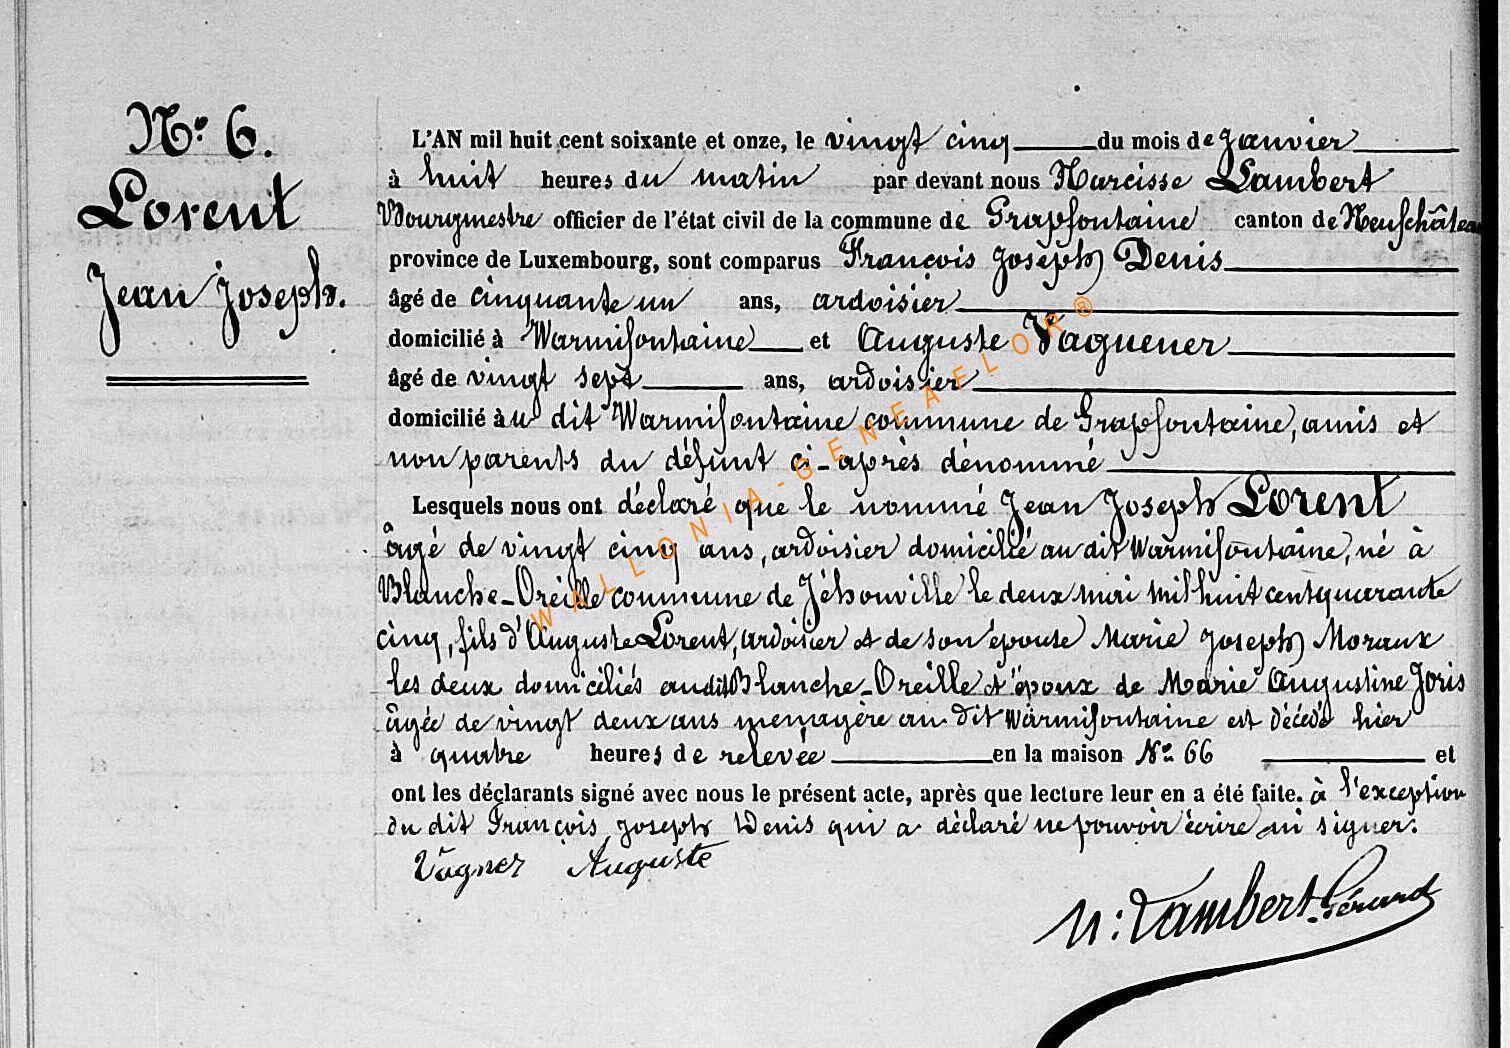 N° 6.
Lorent
Jean Joseph.
L'AN mil huit cent soixante et onze, le vingt cinq du mois de Janvier
à huit heures du matin par devant nous Narcisse Lambert
Bourgmestre officier de l'état civil de la commune de Grapfontaine canton de Neufchâteau
province de Luxembourg, sont comparus François Joseph Denis
âgé de cinquante un ans, ardoisier
domicilié à Warmifontaine et Auguste Vaguener
âgé de vingt sept ans, ardoisier
domicilié au dit Warmifontaine commune de Grapfontaine, amis et
non parents du défunt ci-après dénommé
Lesquels nous ont déclaré que le nommé Jean Joseph Lorent
âgé de vingt cinq ans, ardoisier domicilié au dit Warmifontaine, né à
Blanche-Oreille commune de Jéhonville le deux mai mil huit cent quarante
cinq, fils d'Auguste Lorent, ardoisier et de son épouse Marie Joseph Moraux
les deux domiciliés audit Blanche-Oreille et époux de Marie Augustine Joris
âgée de vingt deux ans menagère au dit Warmifontaine est décédé hier
à quatre heures de relevée en la maison N° 66 et
ont les déclarants signé avec nous le présent acte, après que lecture leur en a été faite. à l'exception
du dit François Joseph Denis qui a déclaré ne pouvoir écrire ni signer.
Vagner Auguste
N: Lambert-Gérard
WALLONIA-GENEAELOR®